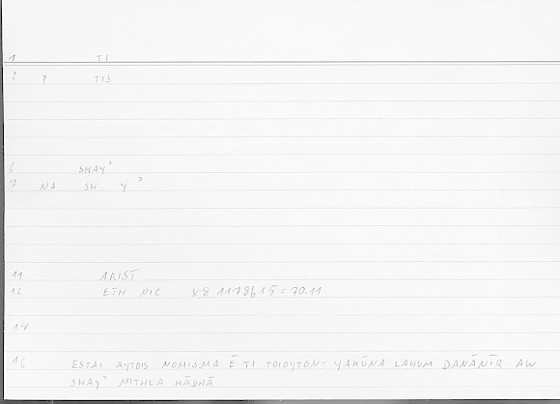 1 TI
2 P TIS
6 SHAY'
7 NA SH Y '
11 ARIST
12 ETH NIC X 8 1178b15 = 70.11
14
16 ESTAI AYTOIS NOMISMA Ē TI TOIOYTON: YAKŪNA LAHUM DANĀNĪR AW
SHAY' MITHLA HĀDHĀ